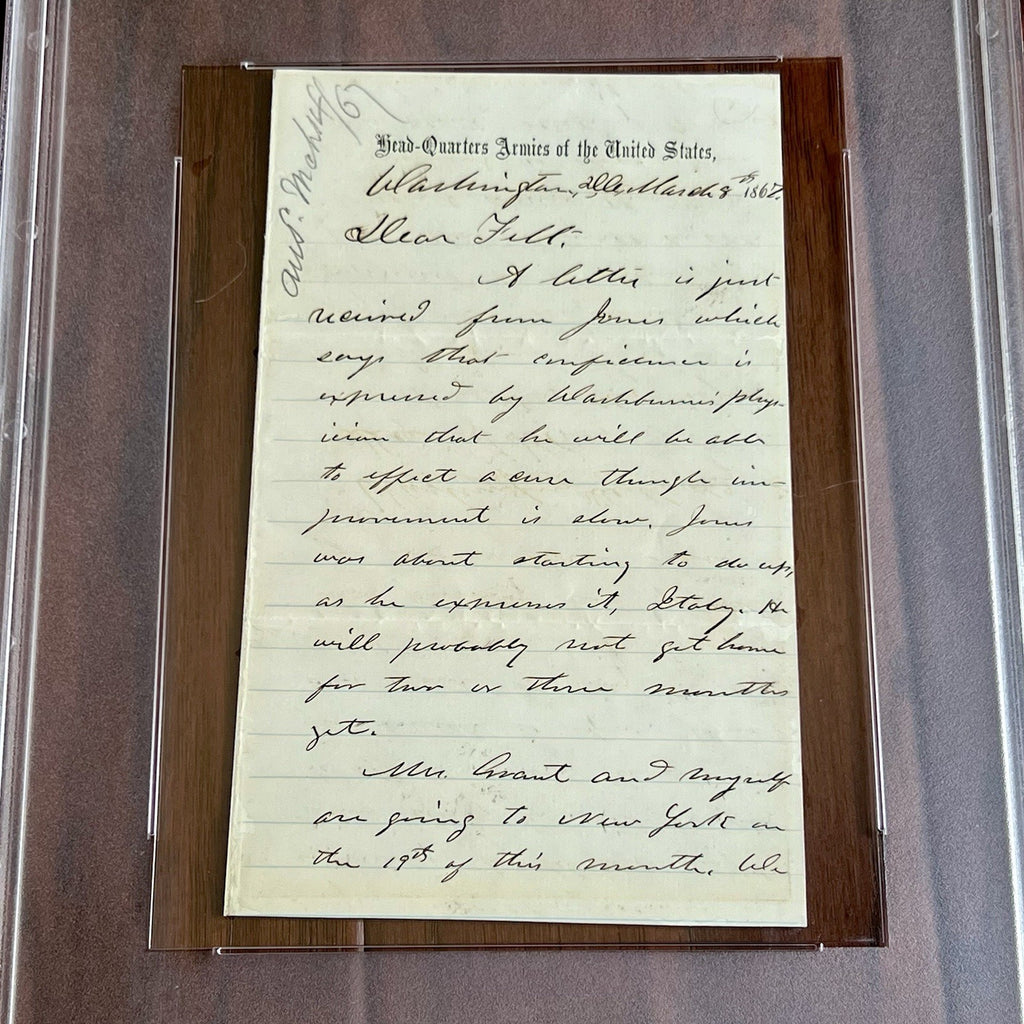 ans. Mch 14/67
Head-Quarters Armies of the United States,
Washington, D.C. March 8th 1867.
Dear Felt.
A letter is just
received from Jones which
says that confidence is
expressed by Washburne's phys-
ician that he will be able
to effect a cure though im-
provement is slow. Jones
was about starting to do up,
as he expresses it, Italy. He
will probably not get home
for two or three months
yet.
Mrs. Grant and myself
are going to New York on
the 19th of this month. We